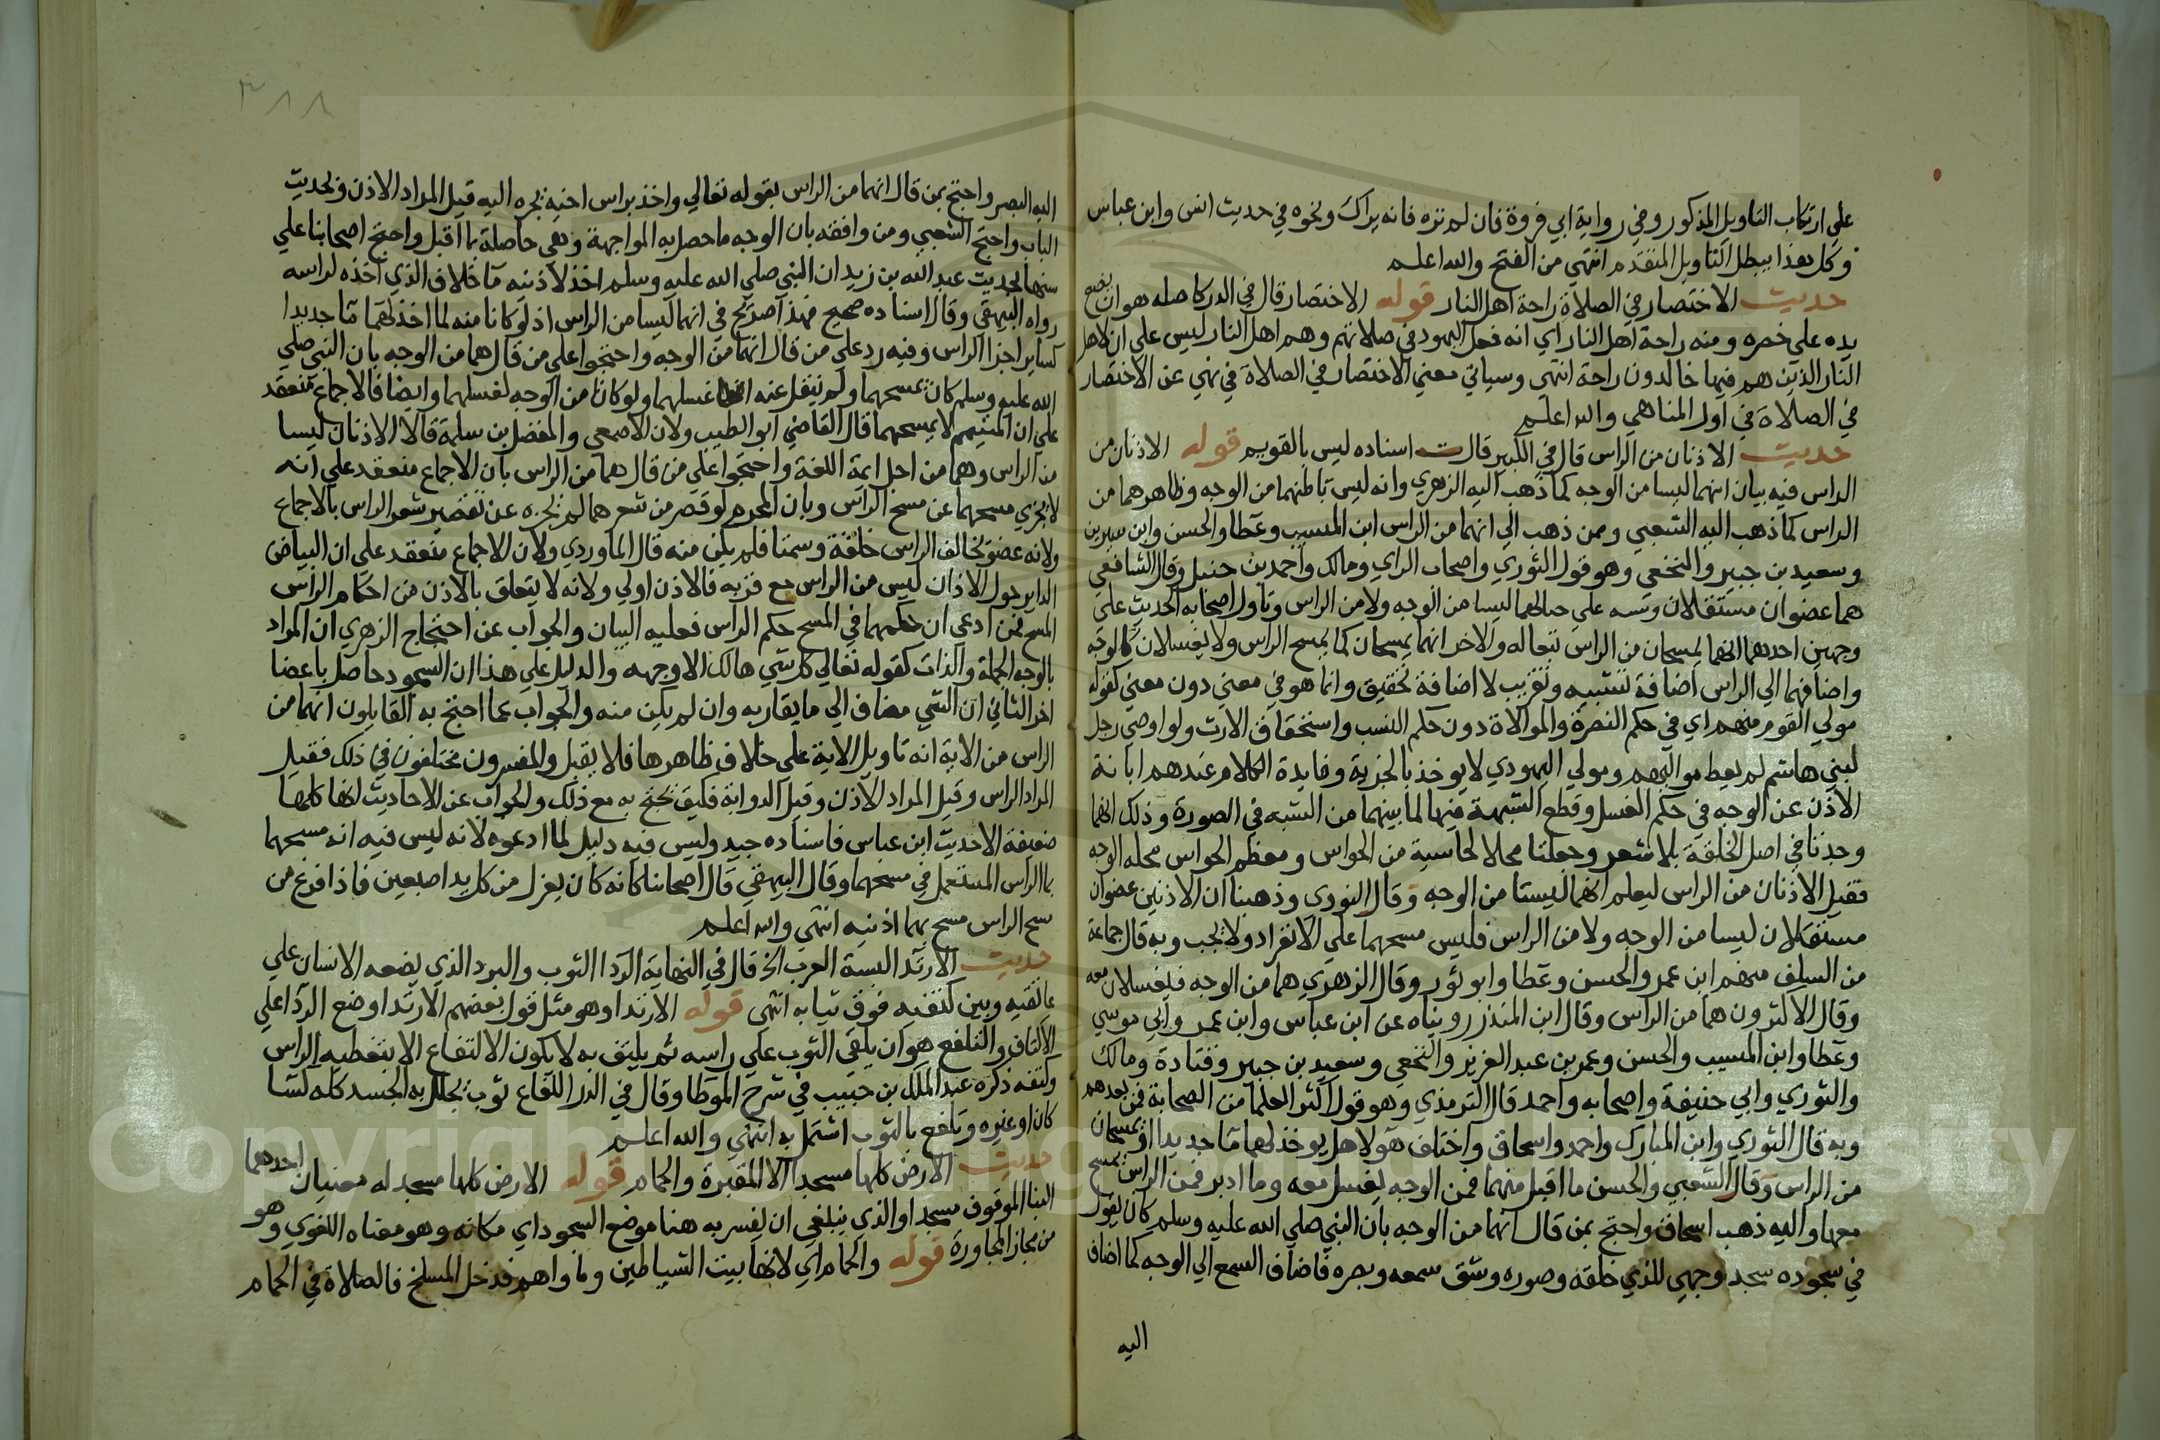 على ارتكاب التاويل المذكور وفي رواية ابي فروة فان لم تره فانه يراك ونحوه في حديث انس وابن عباس
وكل هذا يبطل التاويل المتقدم انتهي من الفتح والله اعلم
حديث الاختصار في الصلاة راحة اهل النار قوله الاختصار قال في الدر كاصله هو ان يضع
يده على خصره ومنه راحة اهل النار اي انه فعل اليهود في صلاتهم وهم اهل النار ليس على ان لاهل
النار الذين هم فيها خالدون راحة انتهى وسياتي معني الاختصار في الصلاة في نهي عن الاختصار
في الصلاة في اول المناهي والله اعلم
حديث الاذنان من الراس قال في الكبير قال ت اسناده ليس بالقويم قوله الاذنان من
الراس فيه بيان انهما ليسا من الوجه كما ذهب اليه الزهري وانه ليس باطنهما من الوجه وظاهرهما من
الراس كما ذهب اليه الشعبي وممن ذهب الي انهما من الراس ابن المسيب وعطا والحسن وابن سيرين
وسعيد بن جبير والنخعي وهو قول الثوري واصحاب الراي ومالك واحمد بن حنبل وقال الشافعي
هما عضوان مستقلان وسنه على حيالهما ليسا من الوجه ولا من الراس وتاول اصحابه الحديث على
وجهين احدهما انهما يمسحان من الراس تبعا له والاخر انهما يمسحان كما يمسح الراس ولا يغسلان كالوجه
واضافهما الي الراس اضافة تشبيه وتقريب لا اضافة تحقيق وانما هو في معني دون معني كقوله
مولي القوم منهم اي في حكم النصرة والموالاة دون حكم النسب واستحقاق الارث ولو اوصي رجل
لبني هاشم لم يعط مواليهم ومولي اليهودي لا يوخذ بالجزية وفايدة الكلام عندهم ابانة
الاذن عن الوجه في حكم الغسل وقطع الشبهة فيها لما بينهما من الشبه في الصورة وذلك انهما
وجدتا في اصل الخلقة بلا شعر وجعلتا محلا لحاسية من الحواس ومعظم الحواس محله الوجه
فقيل الاذنان من الراس ليعلم انهما ليستا من الوجه وقال النووي وذهبنا ان الاذنين عضوان
مستقلان ليسا من الوجه ولا من الراس فليس مسحهما على الانفراد ولا يجب وبه قال جماعة
من السلف منهم ابن عمر والحسن وعطا وابو ثور وقال الزهري هما من الوجه فيغسلان معه
وقال الاكثرون هما من الراس وقال ابن المنذر رويناه عن ابن عباس وابن عمر وابي موسي
وعطا وابن المسيب والحسن وعمر بن عبد العزيز والنخعي وسعيد بن جبير وقتادة ومالك
والثوري وابي حنيفة واصحابه واحمد قال الترمذي وهو قول اكثر العلما من الصحابة فمن بعدهم
وبه قال الثوري وابن المبارك واحمد واسحاق واختلف هولا هل يوخذ لهما ما جديدا او يمسحان
من الراس وقال الشعبي والحسن ما اقبل منهما فمن الوجه يغسل معه وما ادبر فمن الراس يمسح
معها واليه ذهب اسحاق واحتج بمن قال انهما من الوجه بان النبي صلي الله عليه وسلم كان يقول
في سجوده سجد وجهي للذي خلقه وصوره وشق سمعه وبصره فاضاف السمع الي الوجه كما اضاف
اليه
٣٨٨
اليه البصر واحتج بمن قال انهما من الراس بقوله تعالي واخذ براس اخيه يجره اليه قيل المراد الاذن ولحديث
الباب واحتج الشعبي ومن وافقه بان الوجه ما حصل به المواجهة وهي حاصلة بما اقبل واحتج اصحابنا على
منها لحديث عبد الله بن زيد ان النبي صلي الله عليه وسلم اخذ لاذنيه ما خلاف الذي اخذه لراسه
رواه البيهقي وقال اسناده صحيح فهذا صريح في انهما ليسا من الراس اذ لو كانا منه لما اخذ لهما ما جديدا
كساير اجزا الراس وفيه رد على من قال انهما من الوجه واحتجوا على من قال هما من الوجه بان النبي صلي
الله عليه وسلم كان يمسحهما ولم ينقل عنه غسلهما ولو كانا من الوجه لغسلهما وايضا فالاجماع منعقد
على ان المتيمم لا يمسحهما قال القاضي ابو الطيب ولان الاصمعي والمفضل بن سلمة قالا الاذنان ليسا
من الراس وهما من اجل ايمة اللغة واحتجوا على من قال هما من الراس بان الاجماع منعقد على انه
لا يجزي مسحهما عن مسح الراس وبان المحرم لو قصر من شعرهما لم يجزه عن تقصير شعر الراس بالاجماع
ولانه عضو يخالف الراس خلقة وسمتا فلم يكن منه قال الماوردي ولان الاجماع منعقد على ان البياض
الداير حول الاذان ليس من الراس مع قربه فالاذن اولي ولانه لا يتعلق بالاذن من احكام الراس
المسح فمن ادعي ان حكمهما في المسح حكم الراس فعليه البيان والجواب عن احتجاج الزهري ان المراد
بالوجه الجملة والذات كقوله تعالي كل شي هالك الا وجهه والدليل على هذا ان السجود حاصل باعضا
اخر الثاني ان الشي مضاف الي ما يقاربه وان لم يكن منه والجواب عما احتج به القايلون انهما من
الراس من الاية انه تاويل الاية على خلاف ظاهرها فلا يقبل والمفسرون مختلفون في ذلك فقيل
المراد الراس وقيل المراد الاذن وقيل الذوابة فكيف يحتج به مع ذلك والجواب عن الاحاديث انها كلها
ضعيفة الا حديث ابن عباس فاسناده جيد وليس فيه دليل لما ادعوه لانه ليس فيه انه مسحهما
بما الراس المستعمل في مسحهما وقال البيهقي قال اصحابنا كانه كان يعزل من كل يد اصبعين فاذا فرغ من
مسح الراس مسح بهما اذنيه انتهي والله اعلم
حديث الارتدا لبسة العرب الخ قال في النهاية الردا الثوب والبرد الذي يضعه الانسان على
عاتقيه وبين كتفيه فوق ثيابه انتهى قوله الارتدا وهو مثل قول بعضهم الارتدا وضع الردا على
الاكتاف والتلفع هو ان يلقي الثوب على راسه ثم يلتف به لا يكون الالتفاع الا بتغطية الراس
وكتفه ذكره عبد الملك بن حبيب في شرح الموطا وقال في الدر اللفاع ثوب يجلل به الجسد كله كسا
كان او غيره وتلفع بالثوب اشتمل به انتهي والله اعلم
حديث الارض كلها مسجد الا المقبرة والحمام قوله الارض كلها مسجد له معنيان احدهما
البنا الموقوف مسجدا والذي ينبغي ان يفسر به هنا موضع السجود اي مكانه وهو معناه اللغوي وهو
من مجاز المجاورة قوله والحمام اي لانها بيت الشياطين وماواهم فدخل المسلخ فالصلاة في الحمام